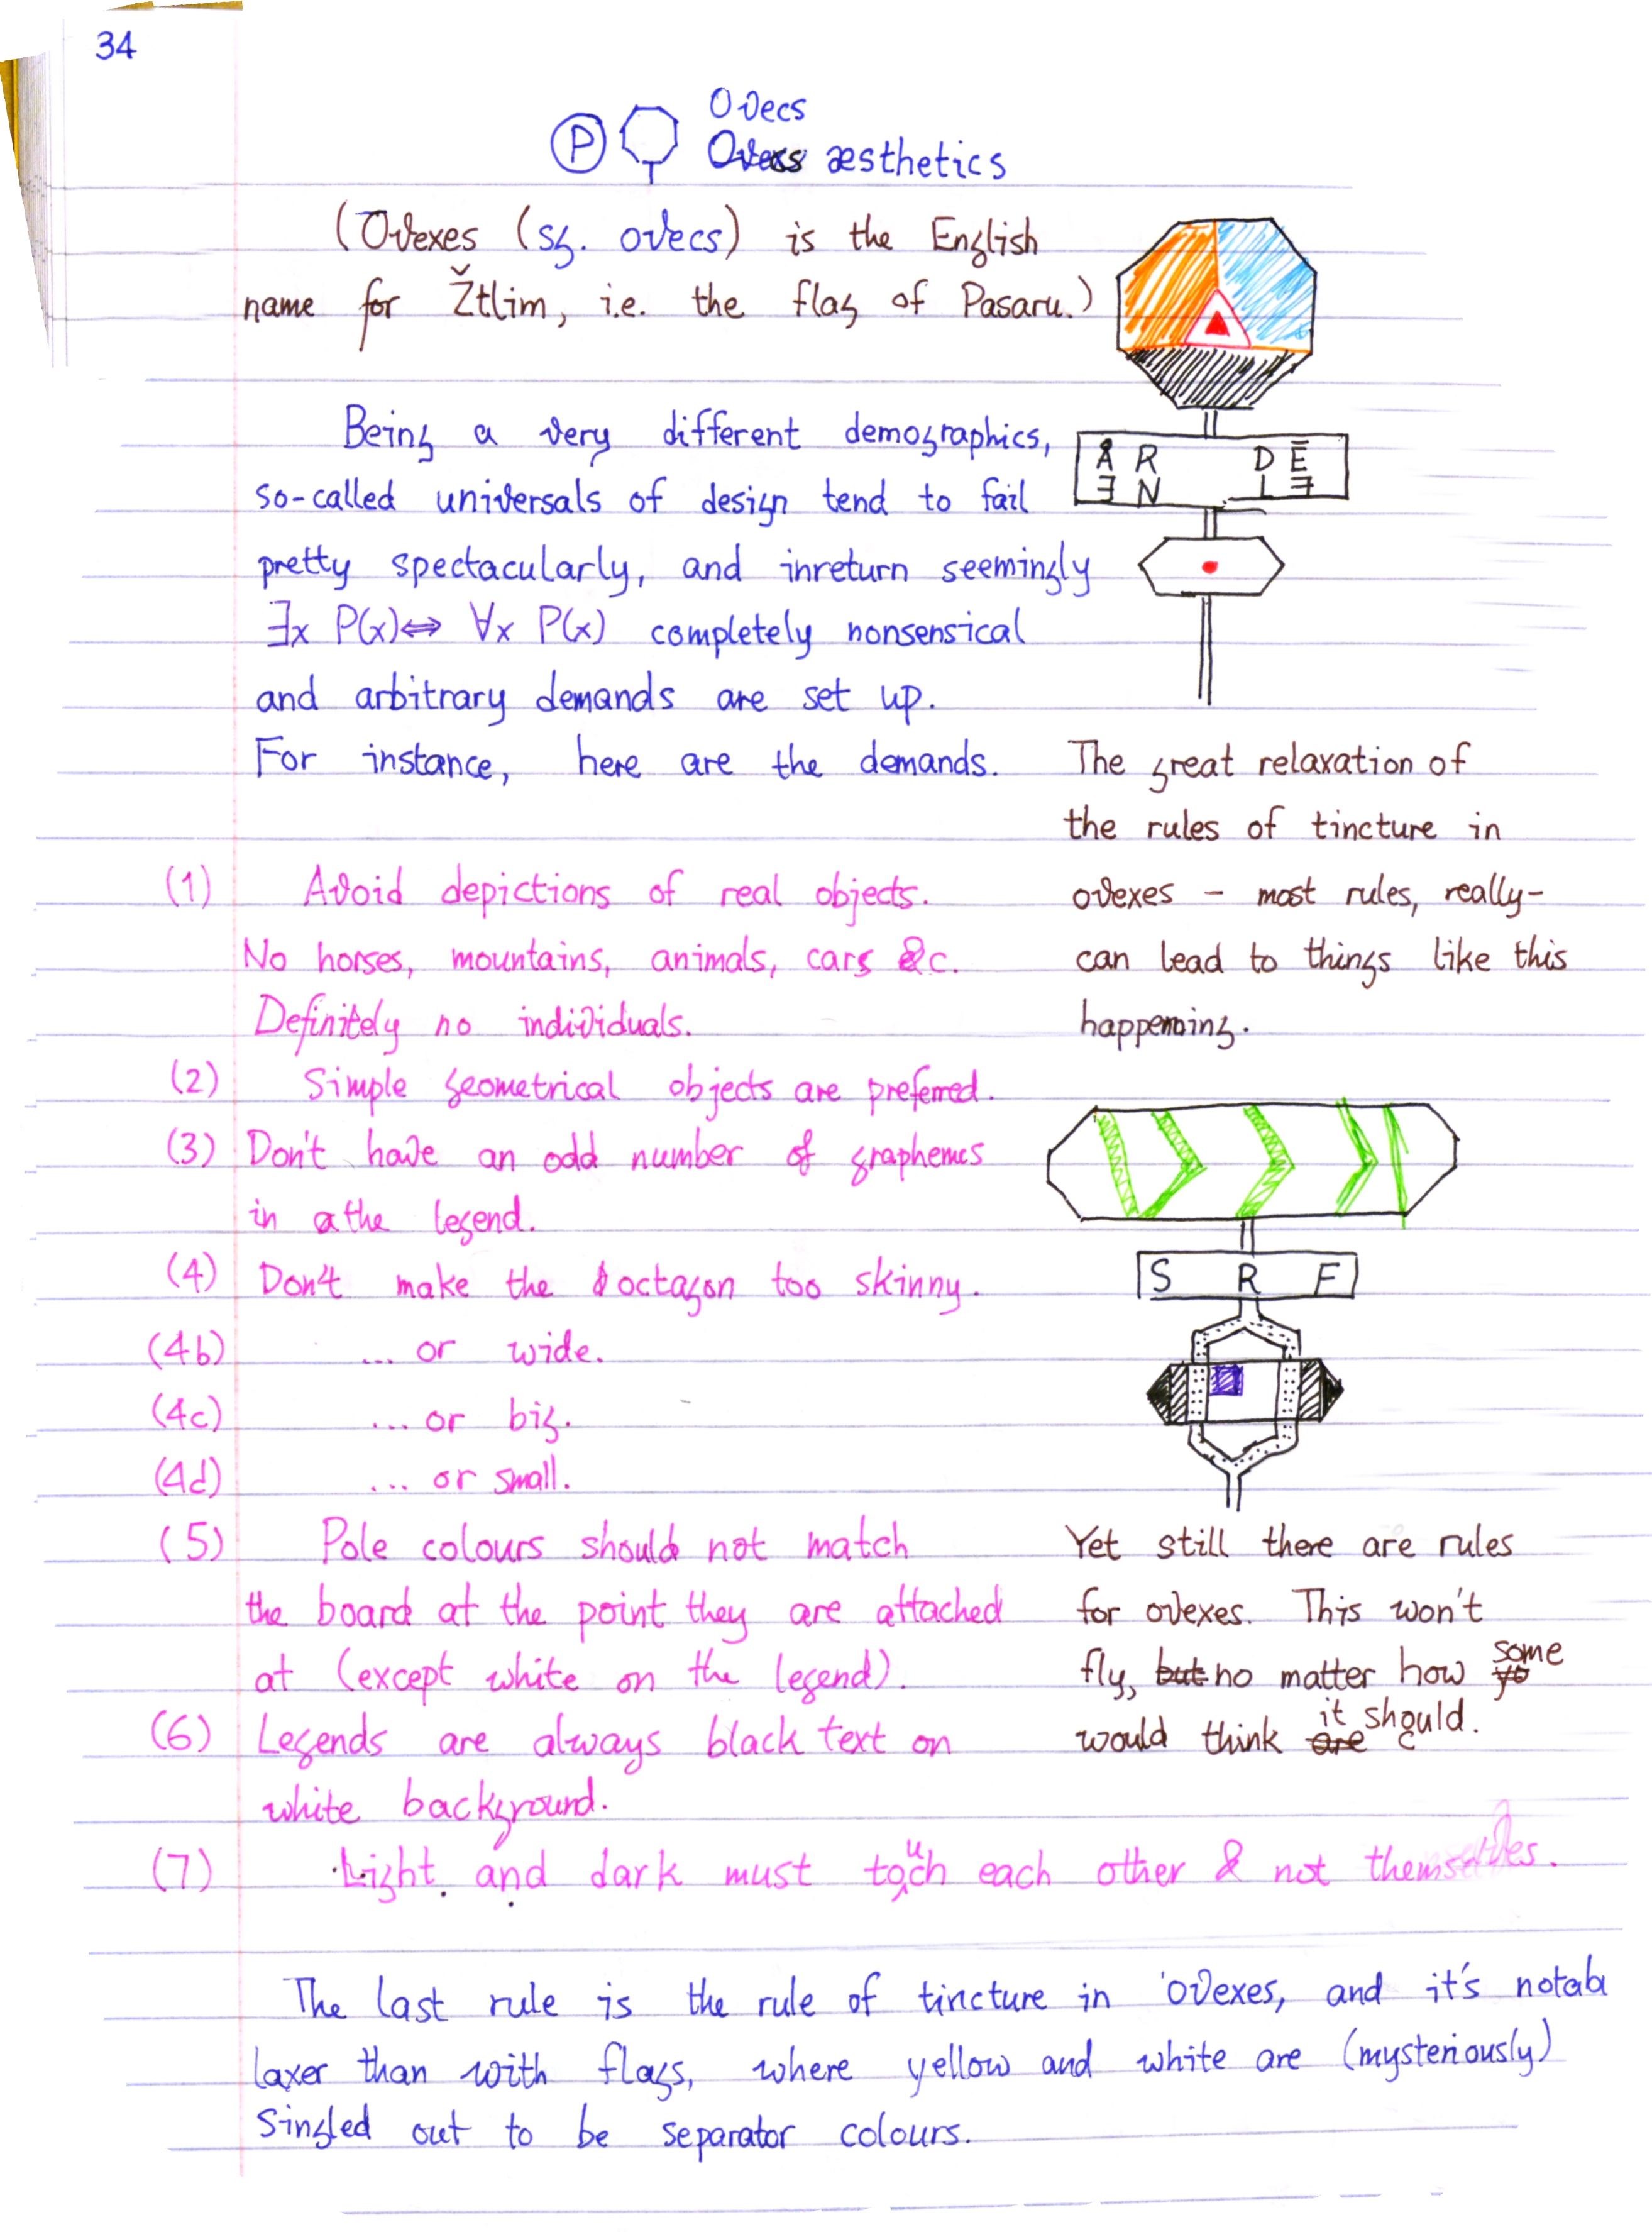 34
P
Ovecs
Ovexs æsthetics
(Ovexes (sg. ovecs) is the English
name for Žtlim, i.e. the flag of Pasaru.)
Being a very different demographics,
so-called universals of design tend to fail
pretty spectacularly, and inreturn seemingly
∃x P(x)⇔ ∀x P(x) completely nonsensical
and arbitrary demands are set up.
For instance, here are the demands.
Å R D Ē
Ǝ N L Ǝ
The great relaxation of
the rules of tincture in
ovexes – most rules, really–
can lead to things like this
happening.
(1) Avoid depictions of real objects.
No horses, mountains, animals, cars &c.
Definitely no individuals.
(2) Simple geometrical objects are preferred.
(3) Don't have an odd number of graphemes
in the legend.
(4) Don't make the octagon too skinny.
(4b) ... or wide.
(4c) ... or big.
(4d) ... or small.
S R F
(5) Pole colours should not match
the board at the point they are attached
at (except white on the legend).
(6) Legends are always black text on
white background.
(7) Light and dark must touch each other & not themselves.
Yet still there are rules
for ovexes. This won't
fly, but no matter how yo some
would think are it should.
The last rule is the rule of tincture in ovexes, and it's notab
laxer than with flags, where yellow and white are (mysteriously)
singled out to be separator colours.